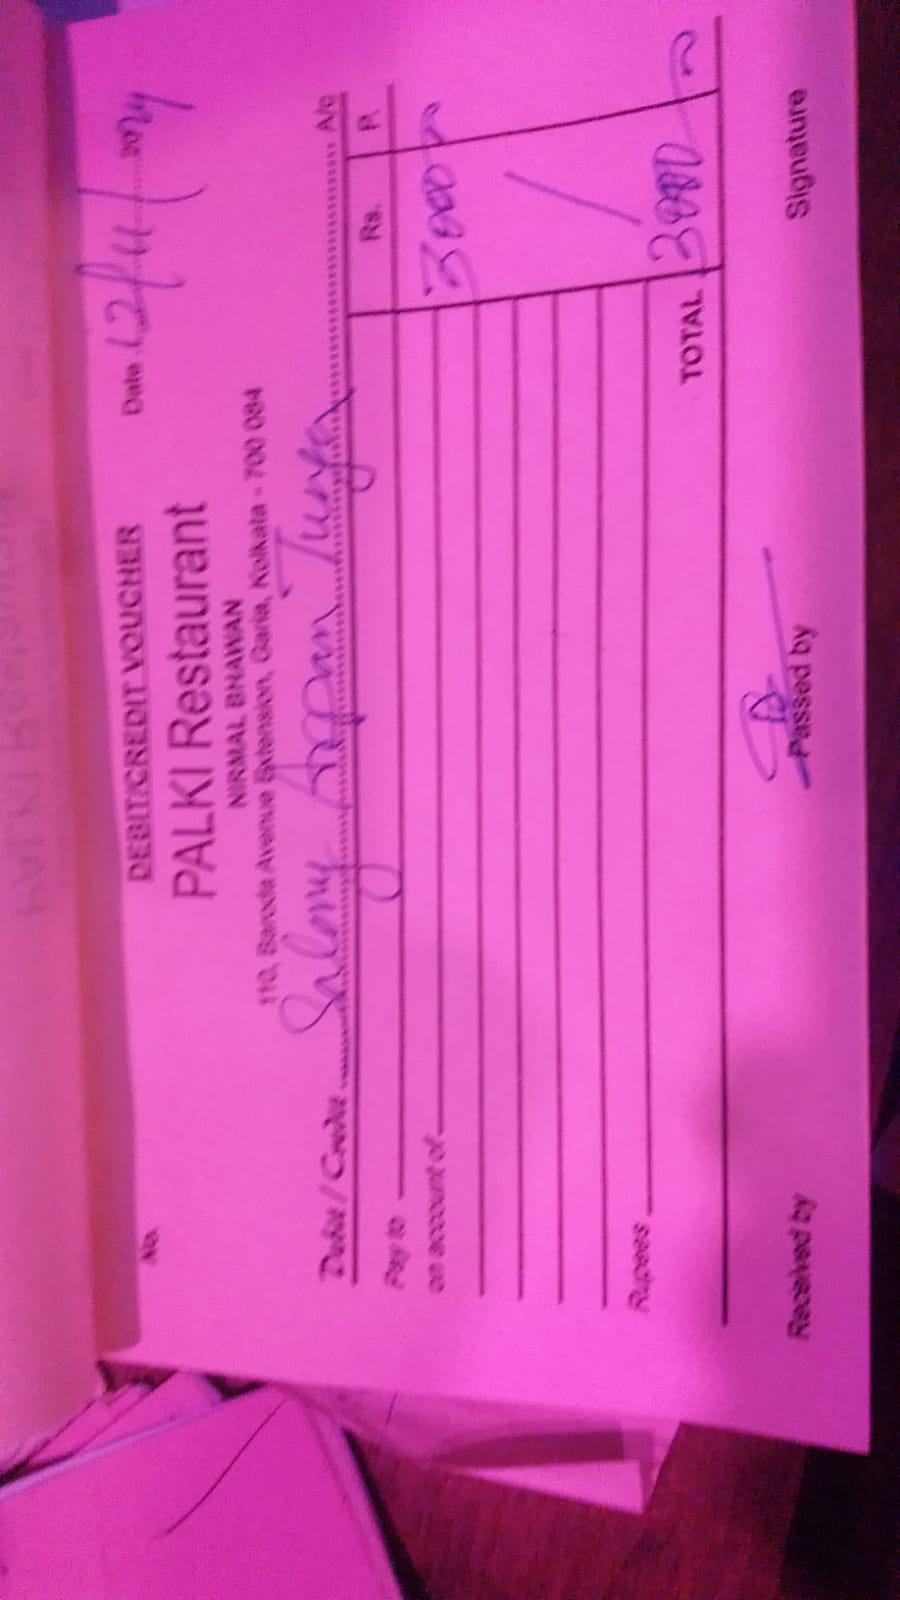 DEBIT/CREDIT VOUCHER
No.
Date 12/4/
PALKI Restaurant
NIRMAL BHAWAN
110, Baroda Avenue Extension, Garia, Kolkata - 700 084
Debit / Credit Salary A/c
Rs. P.
Pay to
on account of 3000
Rupees
TOTAL 3000
Received by Passed by Signature